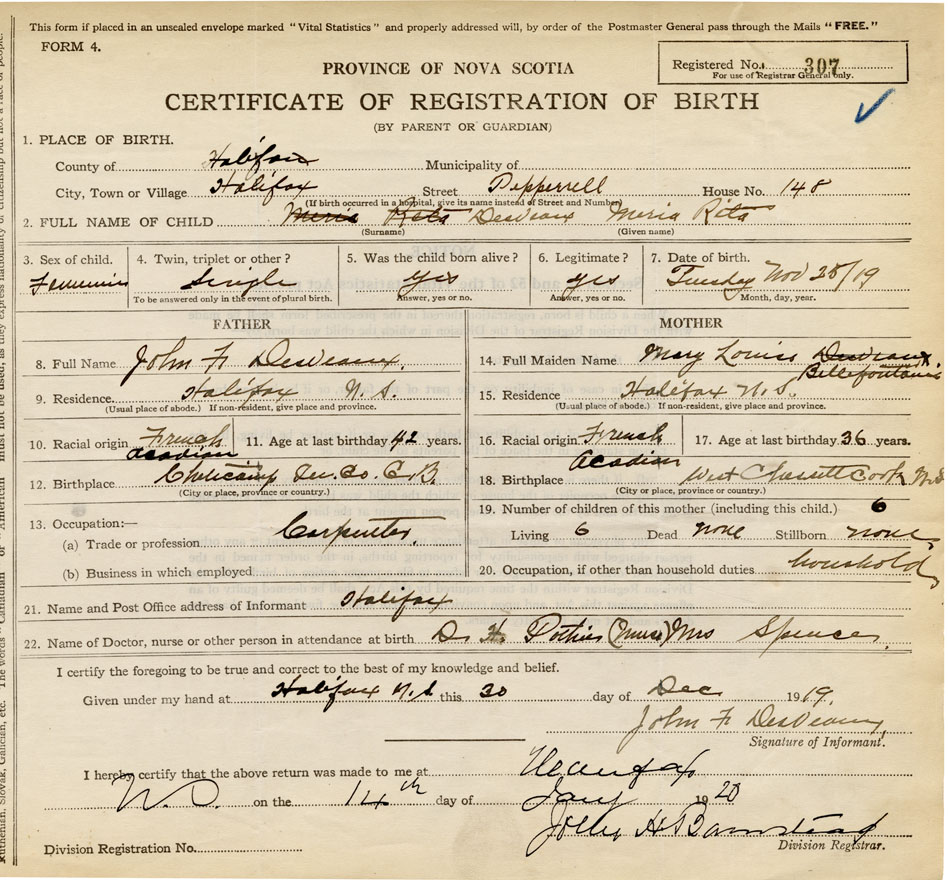 This form if placed in an unsealed envelope marked "Vital Statistics" and properly addressed will, by order of the Postmaster General pass through the Mails "FREE."
FORM 4.
Registered No. 307
For use of Registrar General only.
PROVINCE OF NOVA SCOTIA
CERTIFICATE OF REGISTRATION OF BIRTH
(BY PARENT OR GUARDIAN)
1. PLACE OF BIRTH.
County of Halifax Municipality of
City, Town or Village Halifax Street Pepperrell House No. 148
(If birth occurred in a hospital, give its name instead of Street and Number)
2. FULL NAME OF CHILD Meria Rita DesVeaux Meria Rita
(Surname) (Given name)
3. Sex of child. 4. Twin, triplet or other? 5. Was the child born alive? 6. Legitimate? 7. Date of birth.
Feminin Single yes yes Tuesday Nov 25/19
To be answered only in the event of plural birth. Answer, yes or no. Answer, yes or no. Month, day, year.
FATHER
8. Full Name John F. DesVeaux.
9. Residence. Halifax N.S.
(Usual place of abode.) If non-resident, give place and province.
10. Racial origin French 11. Age at last birthday 42 years.
Acadian
12. Birthplace In. Co. C.B.
(City or place, province or country.)
13. Occupation:—
(a) Trade or profession Carpenter.
(b) Business in which employed
MOTHER
14. Full Maiden Name Mary Louise DesVeaux
15. Residence Halifax N.S.
(Usual place of abode.) If non-resident, give place and province.
16. Racial origin French 17. Age at last birthday. 36 years.
Acadian
18. Birthplace West
(City or place, province or country.)
19. Number of children of this mother (including this child.) 6
Living 6 Dead none Stillborn none
20. Occupation, if other than household duties household
21. Name and Post Office address of Informant Halifax
22. Name of Doctor, nurse or other person in attendance at birth Dr H. (nurse) Mrs Spence
I certify the foregoing to be true and correct to the best of my knowledge and belief.
Given under my hand at Halifax N.S. this 30 day of Dec 1919.
John F DesVeaux
Signature of Informant.
I hereby certify that the above return was made to me at
on the 14th day of Jany 1920
John H Barnstead
Division Registration No. Division Registrar.